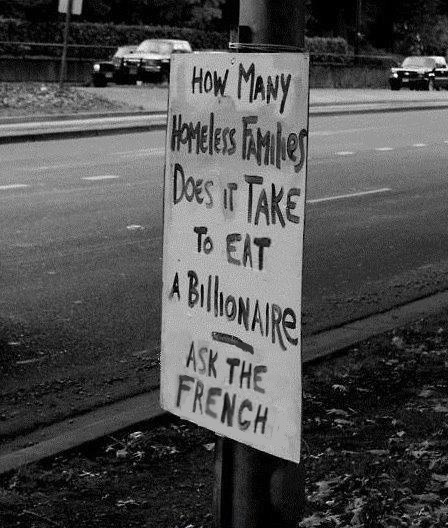 HOW MANY
HOMELESS FAMILIES
DOES IT TAKE
TO EAT
A BILLIONAIRE
ASK THE
FRENCH